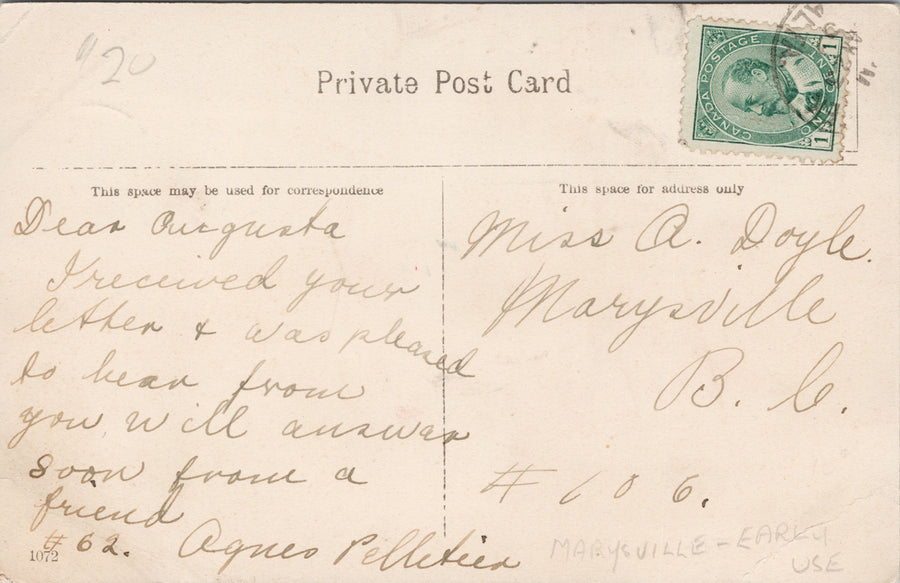 "20
Private Post Card
CANADA POSTAGE
ONE CENT
1 1
This space may be used for correspondence
Dear Augusta
I received your
letter & was pleased
to hear from
you, will answer
soon from a
friend
# 62. Agnes Pelletier
1072
This space for address only
Miss A. Doyle.
Marysville
B. C.
# 106.
MARYSVILLE - EARLY
USE